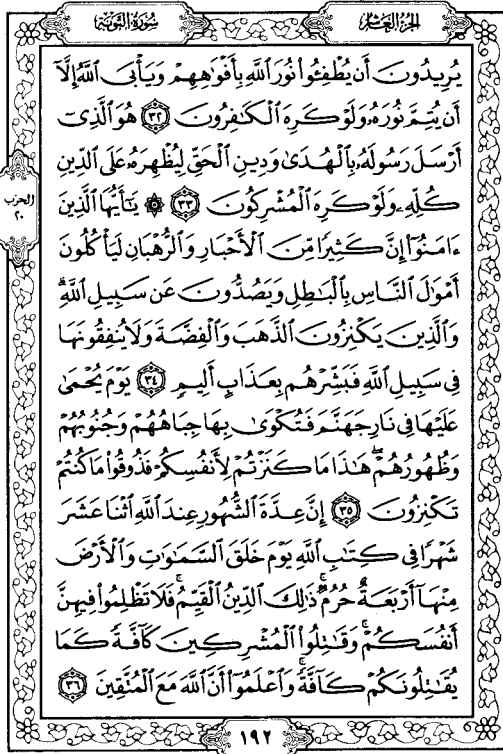 سُورَةُ التَّوْبَةِ
الجُزْءُ العَاشِرُ
يُرِيدُونَ أَن يُطْفِـُٔوا۟ نُورَ ٱللَّهِ بِأَفْوَٰهِهِمْ وَيَأْبَى ٱللَّهُ إِلَّآ
أَن يُتِمَّ نُورَهُۥ وَلَوْ كَرِهَ ٱلْكَٰفِرُونَ ٣٢ هُوَ ٱلَّذِىٓ
أَرْسَلَ رَسُولَهُۥ بِٱلْهُدَىٰ وَدِينِ ٱلْحَقِّ لِيُظْهِرَهُۥ عَلَى ٱلدِّينِ
كُلِّهِۦ وَلَوْ كَرِهَ ٱلْمُشْرِكُونَ ٣٣ ۞ يَٰٓأَيُّهَا ٱلَّذِينَ
الحزب
٢٠
ءَامَنُوٓا۟ إِنَّ كَثِيرًا مِّنَ ٱلْأَحْبَارِ وَٱلرُّهْبَانِ لَيَأْكُلُونَ
أَمْوَٰلَ ٱلنَّاسِ بِٱلْبَٰطِلِ وَيَصُدُّونَ عَن سَبِيلِ ٱللَّهِ ۗ
وَٱلَّذِينَ يَكْنِزُونَ ٱلذَّهَبَ وَٱلْفِضَّةَ وَلَا يُنفِقُونَهَا
فِى سَبِيلِ ٱللَّهِ فَبَشِّرْهُم بِعَذَابٍ أَلِيمٍ ٣٤ يَوْمَ يُحْمَىٰ
عَلَيْهَا فِى نَارِ جَهَنَّمَ فَتُكْوَىٰ بِهَا جِبَاهُهُمْ وَجُنُوبُهُمْ
وَظُهُورُهُمْ ۖ هَٰذَا مَا كَنَزْتُمْ لِأَنفُسِكُمْ فَذُوقُوا۟ مَا كُنتُمْ
تَكْنِزُونَ ٣٥ إِنَّ عِدَّةَ ٱلشُّهُورِ عِندَ ٱللَّهِ ٱثْنَا عَشَرَ
شَهْرًا فِى كِتَٰبِ ٱللَّهِ يَوْمَ خَلَقَ ٱلسَّمَٰوَٰتِ وَٱلْأَرْضَ
مِنْهَآ أَرْبَعَةٌ حُرُمٌ ۚ ذَٰلِكَ ٱلدِّينُ ٱلْقَيِّمُ ۚ فَلَا تَظْلِمُوا۟ فِيهِنَّ
أَنفُسَكُمْ ۚ وَقَٰتِلُوا۟ ٱلْمُشْرِكِينَ كَآفَّةً كَمَا
يُقَٰتِلُونَكُمْ كَآفَّةً ۚ وَٱعْلَمُوٓا۟ أَنَّ ٱللَّهَ مَعَ ٱلْمُتَّقِينَ ٣٦
١٩٢